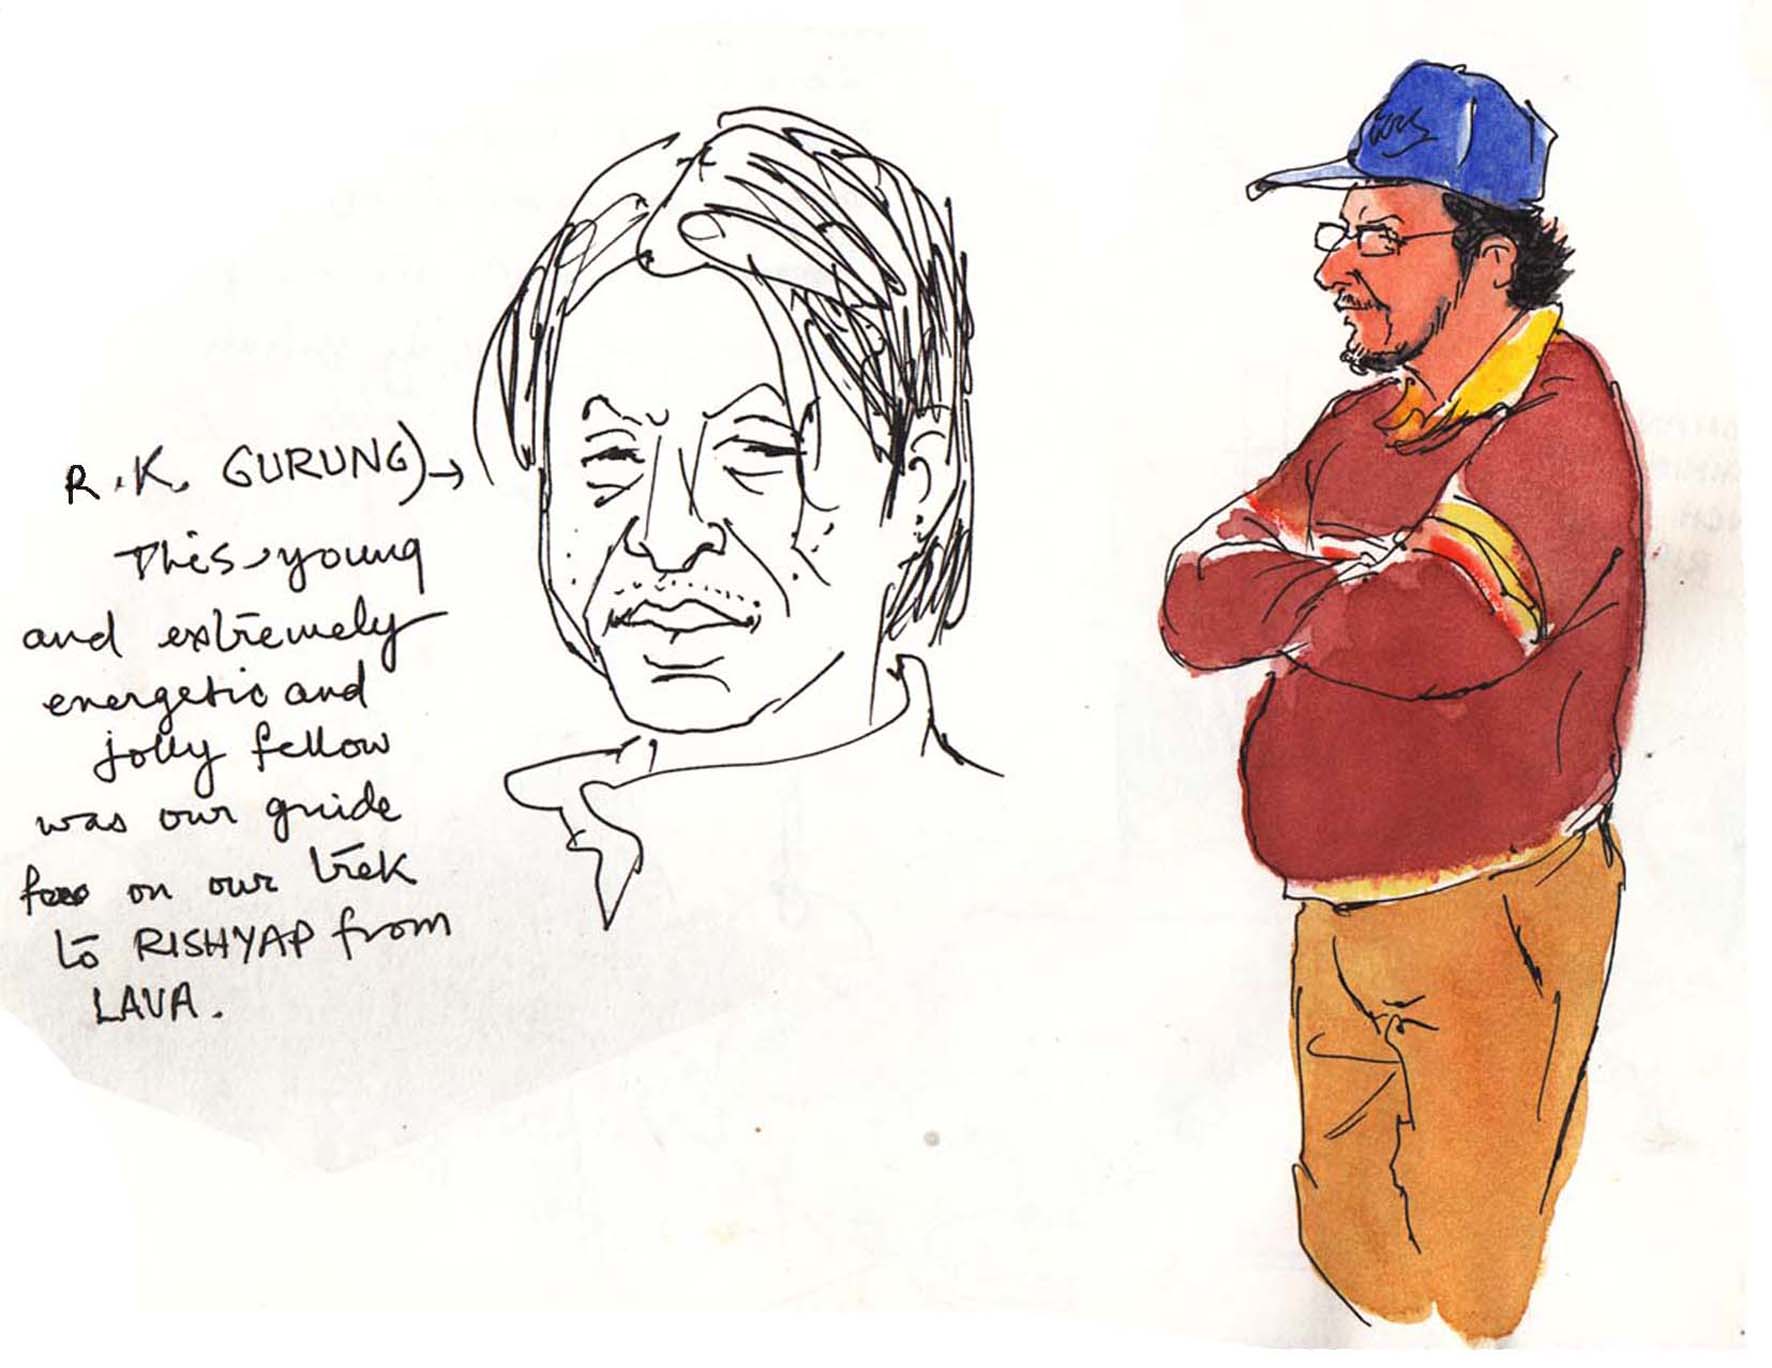 R.K. GURUNG) →
This young
and extremely
energetic and
jolly fellow
was our guide
on our trek
to RISHYAP from
LAVA.